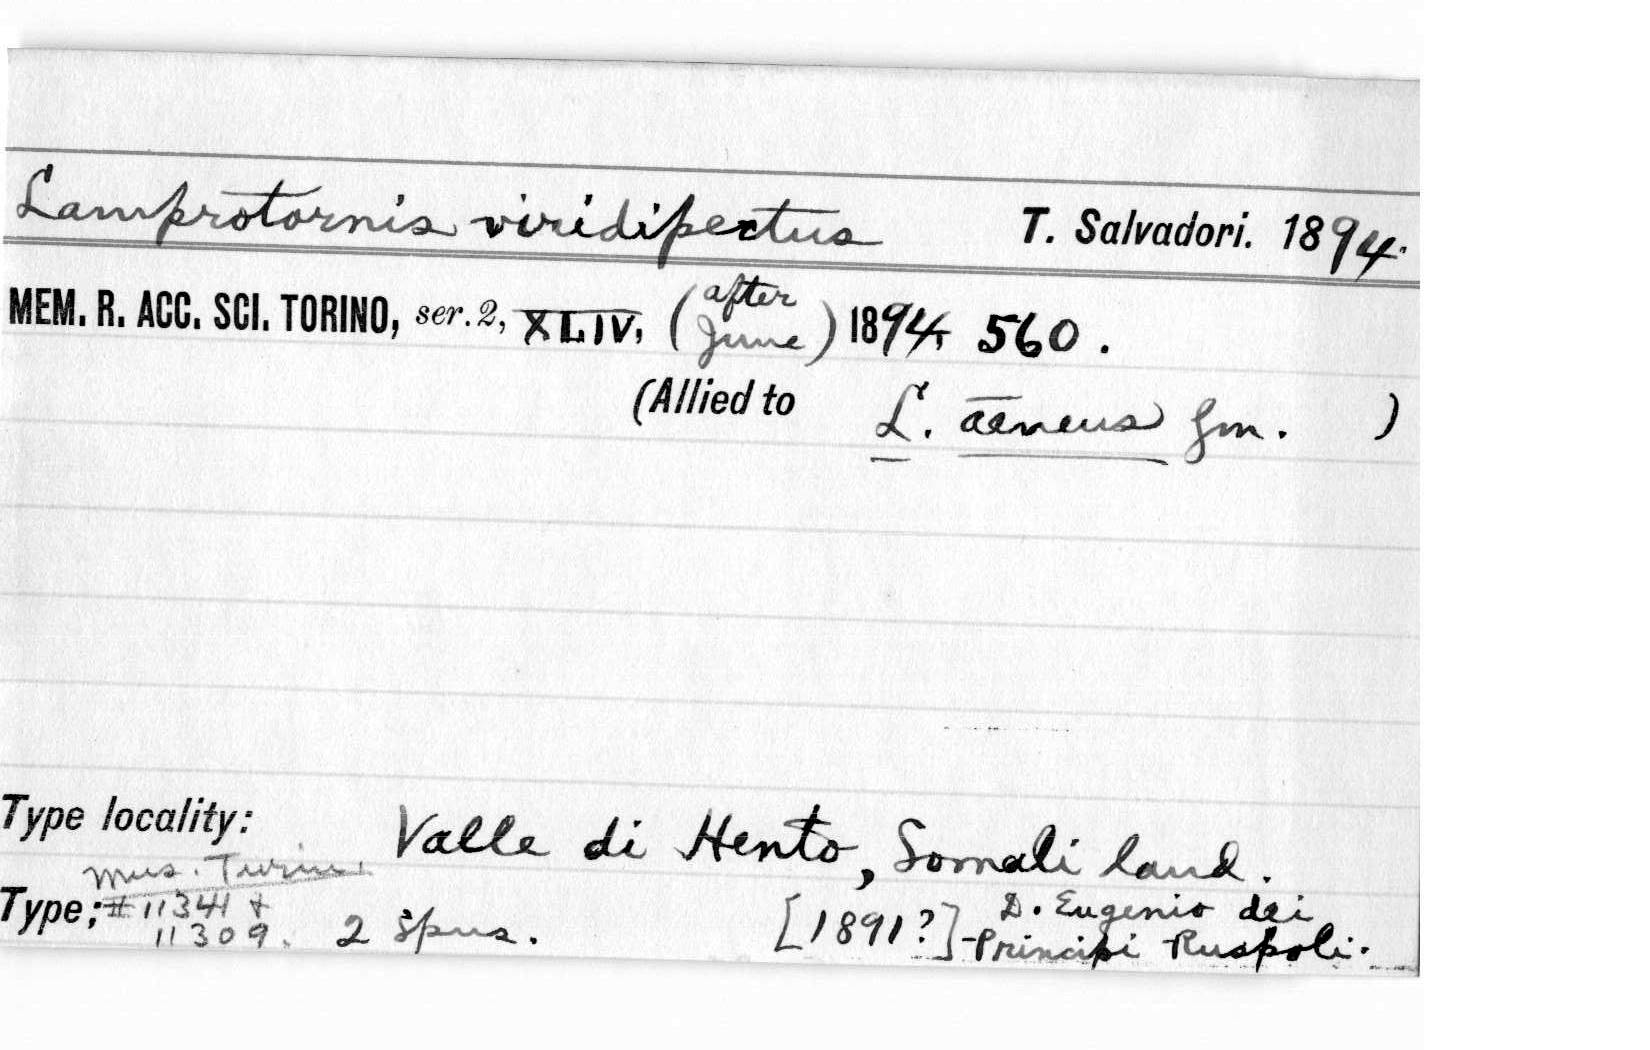 Lamprotornis viridipectus T. Salvadori. 1894.
MEM. R. ACC. SCI. TORINO, ser. 2, XLIV, (after June) 1894, 560.
(Allied to L. aeneus Gm. )
Type locality: Valle di Hento, Somali land.
Mus. Turin.
Type; #11341 + 11309. 2 spns. [1891?] D. Eugenio dei
Principi Ruspoli.